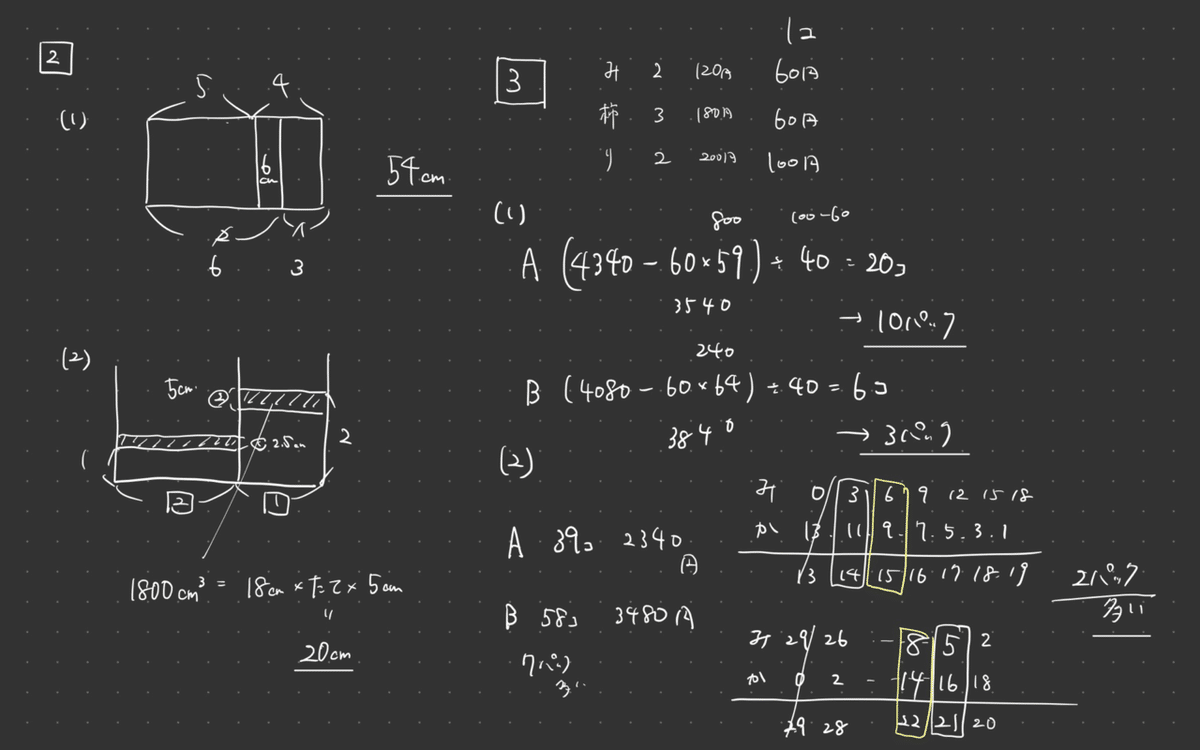 2
(1)
5 4
6cm
2 1
6 3
54cm
(2)
5cm ②
① 2.5cm
1 2
2 1
1800cm³ = 18cm × たて × 5cm
〃
20cm
3
1コ
み 2 120円 60円
柿 3 180円 60円
リ 2 200円 100円
(1)
800 100-60
A (4340 - 60×59) ÷ 40 = 20コ
3540
→ 10パック
240
B (4080 - 60×64) ÷ 40 = 6コ
3840
→ 3パック
(2)
A 39コ 2340円
B 58コ 3480円
7パック
多い
み 0 3 6 9 12 15 18
か 13 11 9 7 5 3 1
13 14 15 16 17 18 19
2パック
多い
み 29 26 - 8 5 2
か 0 2 - 14 16 18
29 28 22 21 20